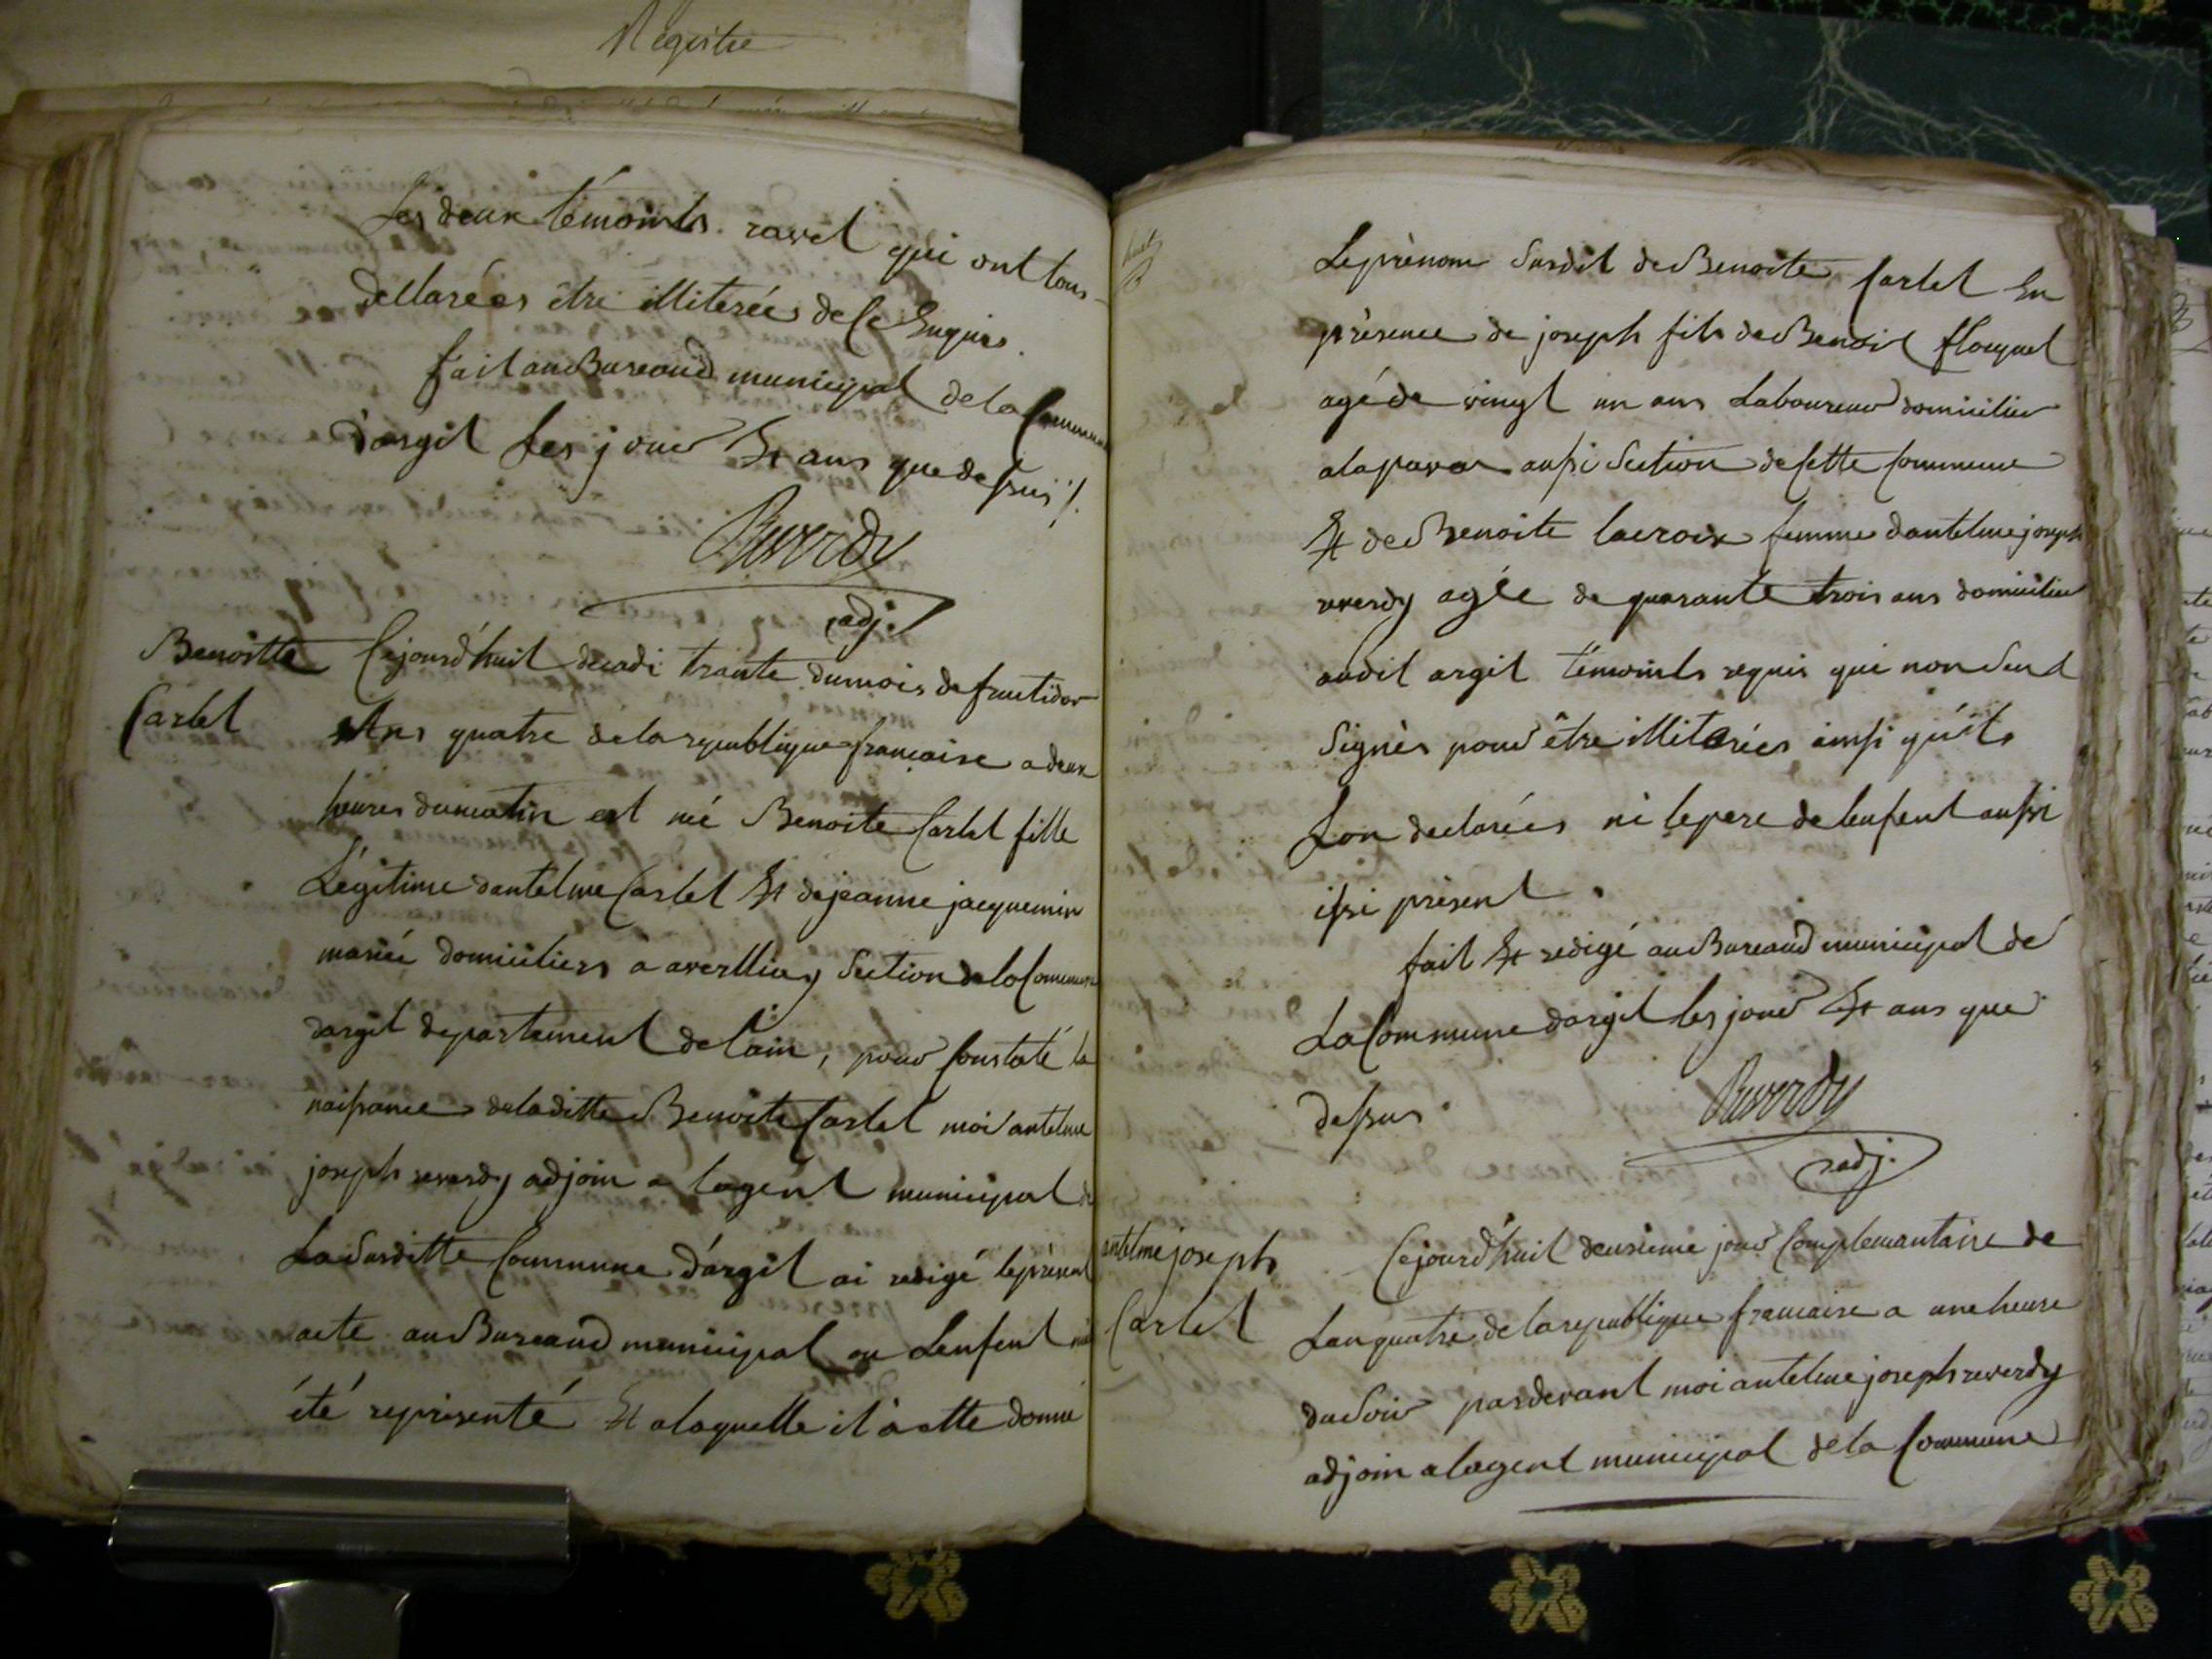 Registre
Les deux témoints. ravet qui ont tous
dellarées être illiterées de ce Enquis.
fait au Bureaud municipal de la Commune
d'argit Les jour Et ans que dessus ./.
Reverdy
adj.
Benoitte
Carlet
Cejourd'huit decadi trante dumois de fructidor
Ans quatre de la republique francaise a deux
heures dumatin est né Benoite Carlet fille
Légitime dantelme Carlet Et dejeanne jacquemin
mariée domiciliers a averlliay Section de la Commune
dargit departement de lain, pour Constaté la
naissance deladitte Benoite Carlet moi antelme
joseph reverdy adjoin a lagent municipal de
La Susditte Commune d'argit ai redigé le présent
acte au Bureaud municipal ou Lenfent
été représenté Et alaquelle il à ette donné
Le prènom Susdit de Benoite Carlet En
prèsence de joseph fils de Benoit flocquet
agé de vingt un ans Laboureur domicilier
alapavas aussi Section de Cette Commune
Et de Benoite lacroix femme dantelme joseph
reverdy agée de quarante trois ans domicilier
audit argit témoints requis qui non Sund
Signès pour être illitérées ainsi qu'ils
Lon declarées ni le pere de lenfent aussi
issi prèsent.
fait Et redigé au Bureaud municipal dé
La Commune dargit les jour Et ans que
dessus.
Reverdy
adj.
antelme joseph
Carlet
Cejourd'huit deusieme jour Complemantaire de
Lan quatre de la republique francaise a une heure
du Soir pardevant moi antelme joseph reverdy
adjoin a lagent municipal de la Commune